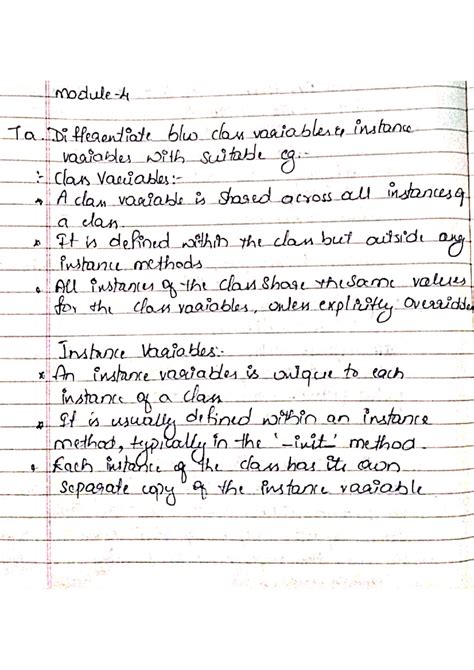 Module-4
7a. Differentiate b/w class variables & instance
variables with suitable eg:-
:- Class Variables:-
* A class variable is shared across all instances of
a class.
* It is defined within the class but outside any
instance methods
• All instances of the class share the same values
for the class variables, unless explicitly overridden
Instance Variables:-
* An instance variables is unique to each
instance of a class
* It is usually defined within an instance
method, typically in the '_init_' method.
• Each instance of the class has its own
separate copy of the instance variable